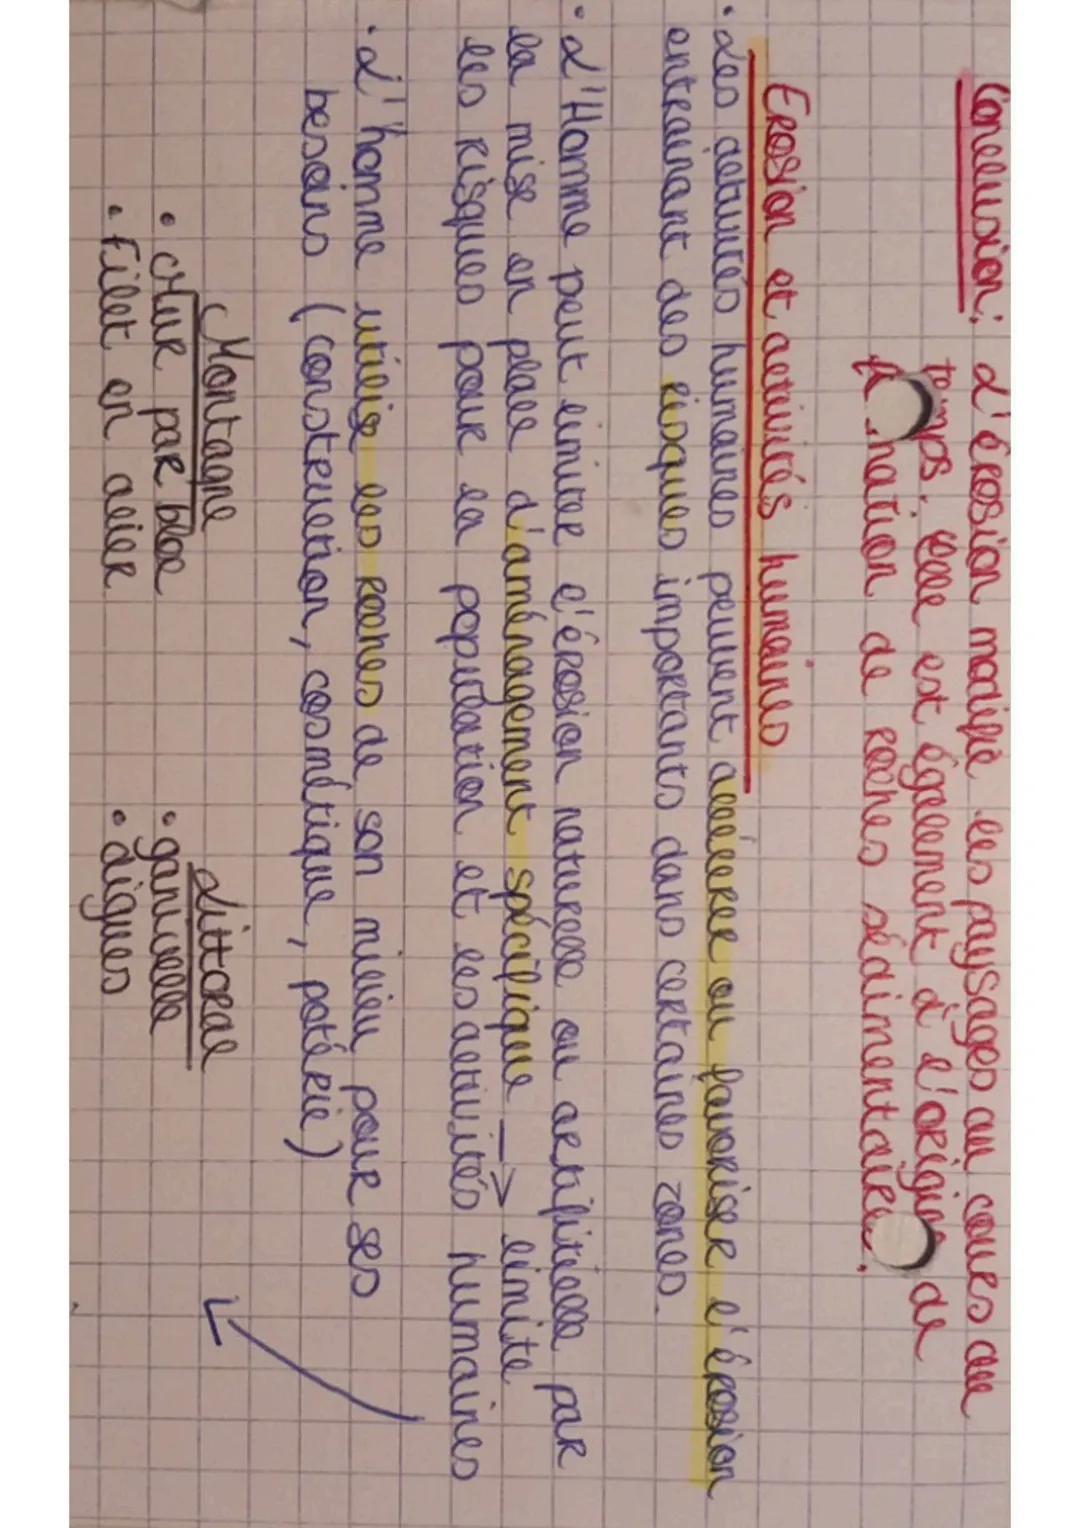 Conclusion: L'érosion modifie les paysages au cours du
temps. Elle est également à l'origine de
la nation de roches sédimentaires.
Erosion et activités humaines
• Les activités humaines peuvent accélérer ou favoriser l'érosion
entrainant des risques importants dans certaines zones.
• L'Homme peut limiter l'érosion naturelle ou artificielle par
la mise en place d'aménagement spécifique —> limite
les risques pour la population et les activités humaines
• L'homme utilise les roches de son milieu pour ses
besoins (construction, cosmétique, potérie)
Montagne Littoral
• Mur par bloc • ganivelle
• Filet en acier • digues